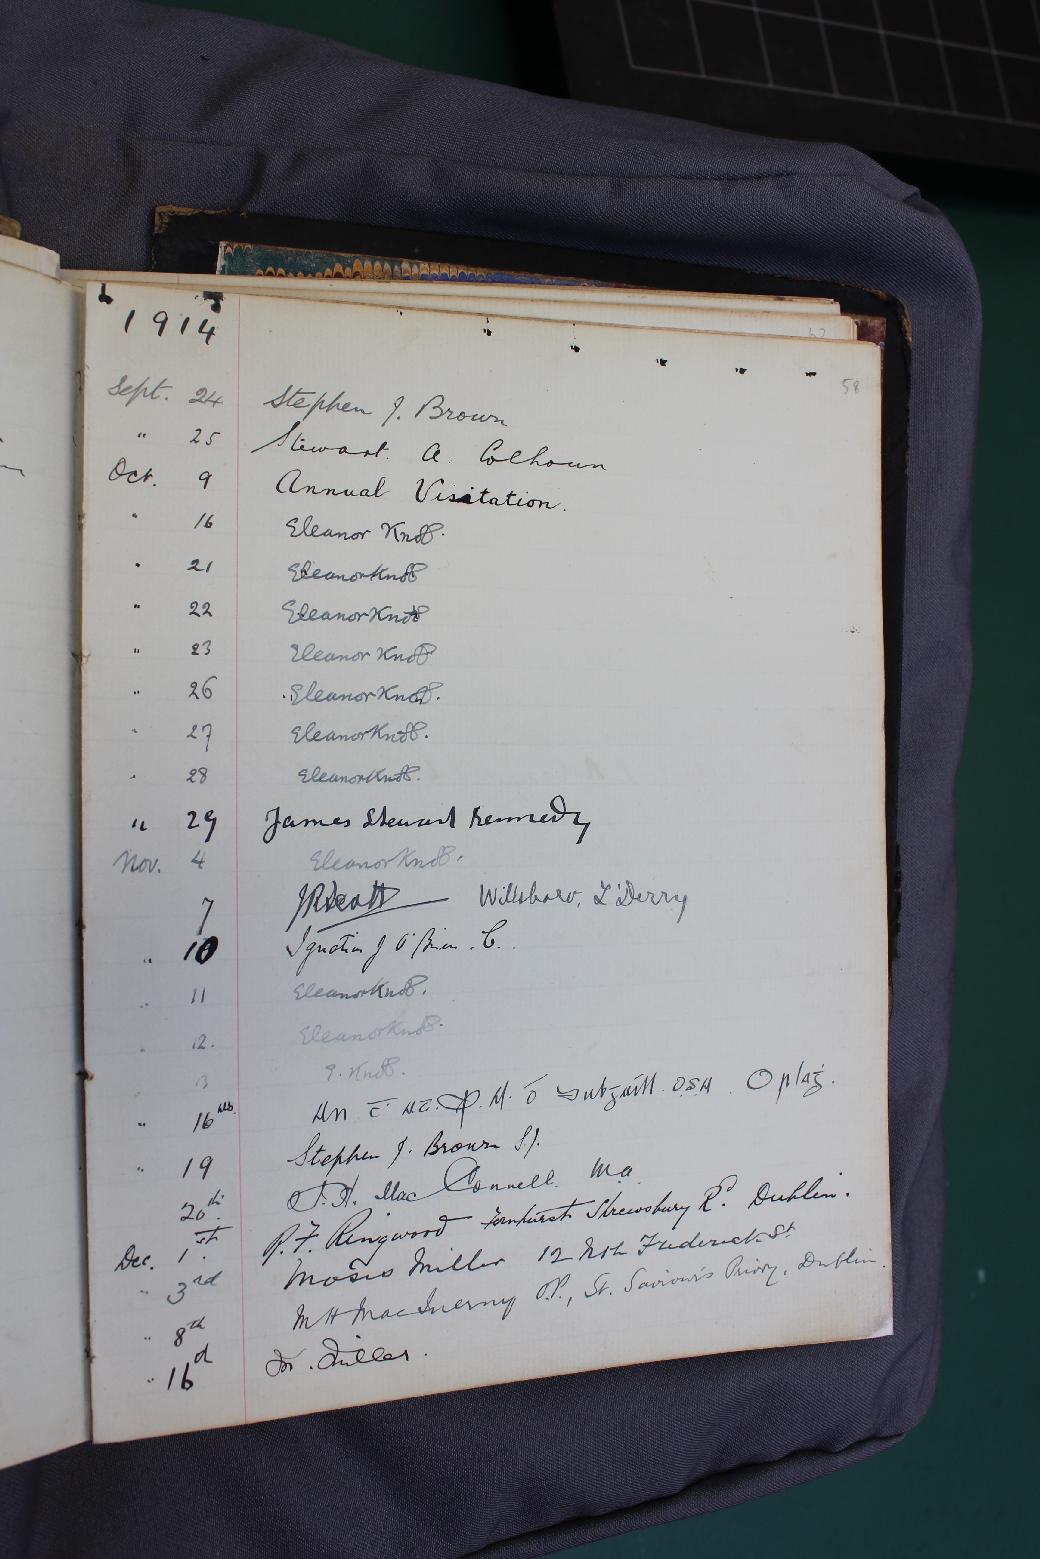 1914
58
Sept. 24 Stephen J. Brown
" 25 Stewart A. Colhoun
Oct. 9 Annual Visitation.
" 16 Eleanor Knott.
" 21 Eleanor Knott
" 22 Eleanor Knott
" 23 Eleanor Knott
" 26 Eleanor Knott.
" 27 Eleanor Knott.
" 28 Eleanor Knott.
" 29 James Stewart Kennedy
Nov. 4 Eleanor Knott.
7 Willsboro, L'Derry
" 10 Ignatius J O'Brien. C.
" 11 Eleanor Knott.
" 12. Eleanor Knott.
13 E. Knott.
" 16 O.S.A.
" 19 Stephen J. Brown S.J.
20th J. A. Mac Connell M.A.
Dec. 1st. P. F. Ringwood Shrewsbury Rd. Dublin.
" 3rd Moses Miller 12 Nth Frederick St
" 8th M H MacInerny O.P., St. Saviour's Priory, Dublin.
" 16 M. Miller.